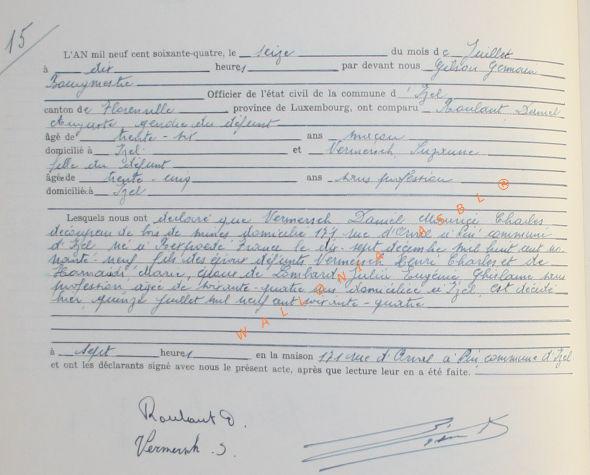 15
L'AN mil neuf cent soixante-quatre, le seize du mois de Juillet
à dix heures par devant nous Gilson Germain
Bourgmestre Officier de l'état civil de la commune d'Izel
canton de Florenville province de Luxembourg, ont comparu Roulant Daniel
Auguste gendre du défunt
âgé de trente-six ans maçon
domicilié à Izel et Vermersch Suzanne
fille du défunt
âgée de trente-cinq ans sans profession
domiciliée à Izel
Lesquels nous ont déclaré que Vermersch Daniel Maurice Charles
découpeur de bois de mines domicilié rue d'Orval à Pin commune
d'Izel né à France le dix-sept décembre mil huit cent no
nante neuf, fils des époux défunts Vermersch Henri Charles et de
Marie, époux de Lombard Julie Eugénie Ghislaine sans
profession âgée de soixante-quatre ans domiciliée à Izel, est décédé
hier, quinze juillet mil neuf cent soixante-quatre
à sept heures en la maison 171 rue d'Orval à Pin, commune d'Izel
et ont les déclarants signé avec nous le présent acte, après que lecture leur en a été faite.
Roulant D.
Vermersch S.
WALLONIA ASBL ®